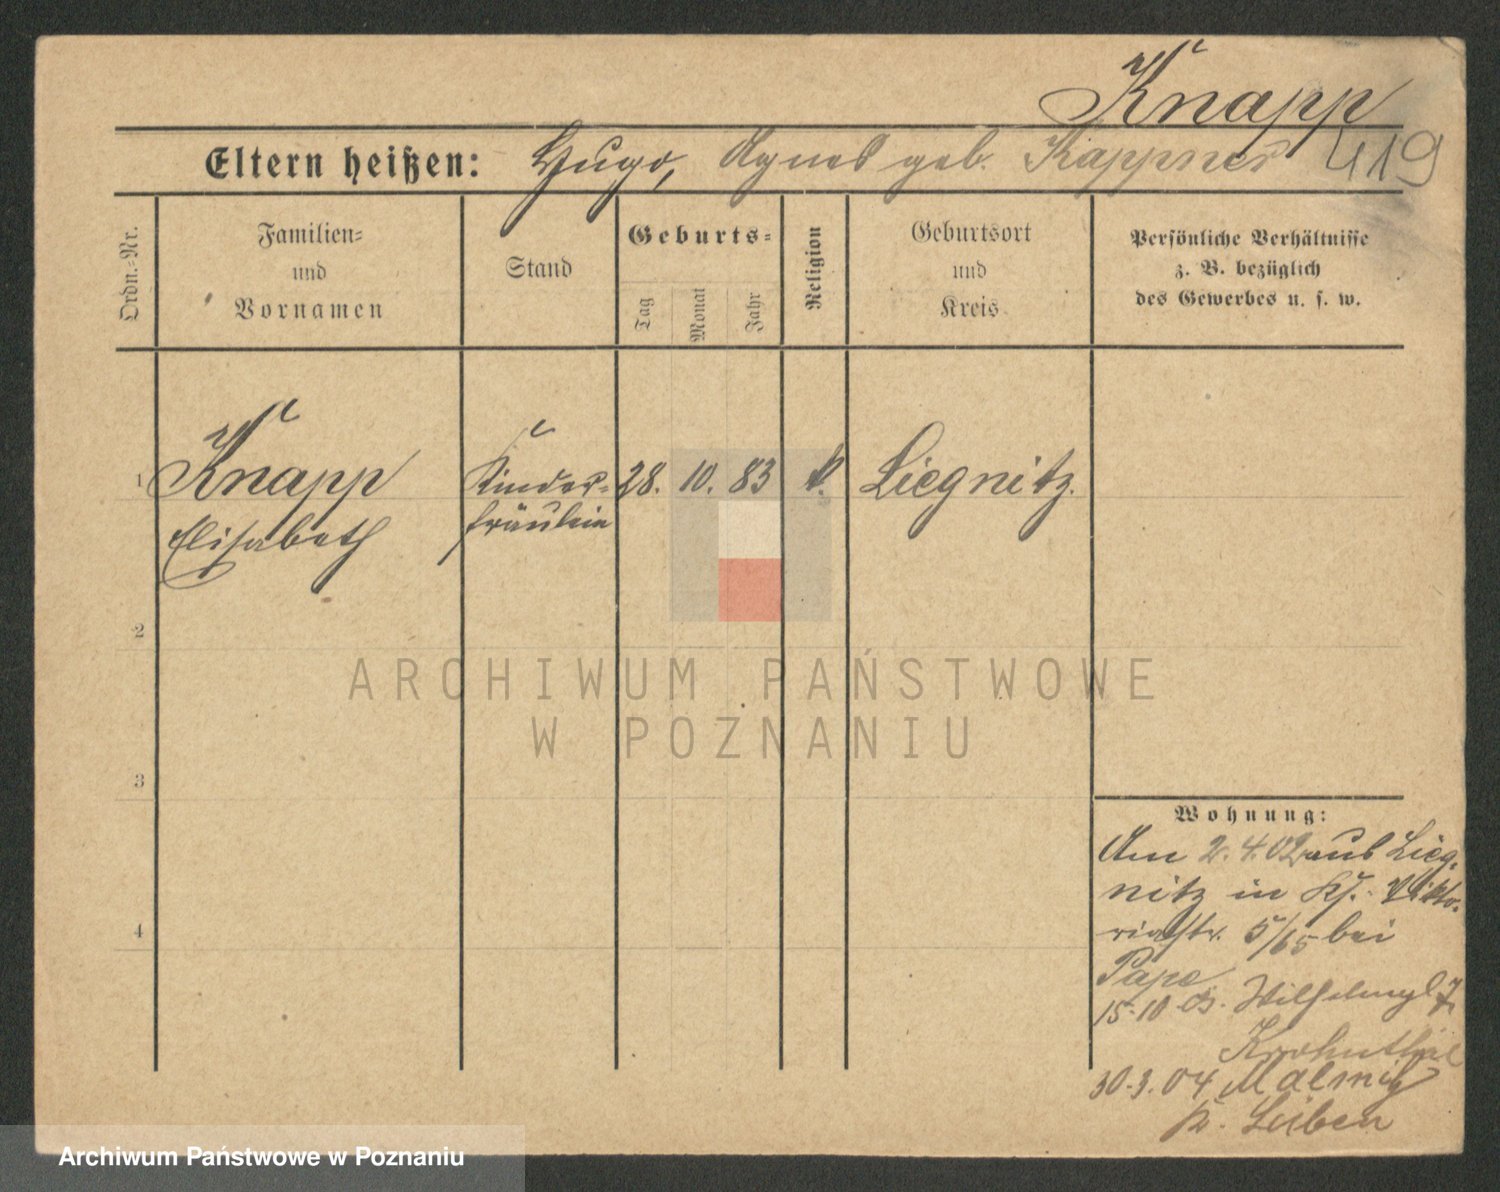 Knapp
Eltern heißen: Hugo, Agnes geb. Kappner 419
Ordn.-Nr.
Familien-
und
Vornamen
Stand
Geburts-
Tag
Monat
Jahr
Religion
Geburtsort
und
Kreis
Persönliche Verhältnisse
z. B. bezüglich
des Gewerbes u. s. w.
1 Knapp Kinder- 28. 10. 83 k. Liegnitz.
Elisabeth fräulein
2
3
4
Wohnung:
Am 2. 4. 02 aus Lieg-
nitz in Vikto-
riastr. 5/65 bei
Pape
15.10 Wilhelmspl 7.
Krohnthal
30.3.04 Malmitz
Kr. Lüben
ARCHIWUM PAŃSTWOWE
W POZNANIU
Archiwum Państwowe w Poznaniu